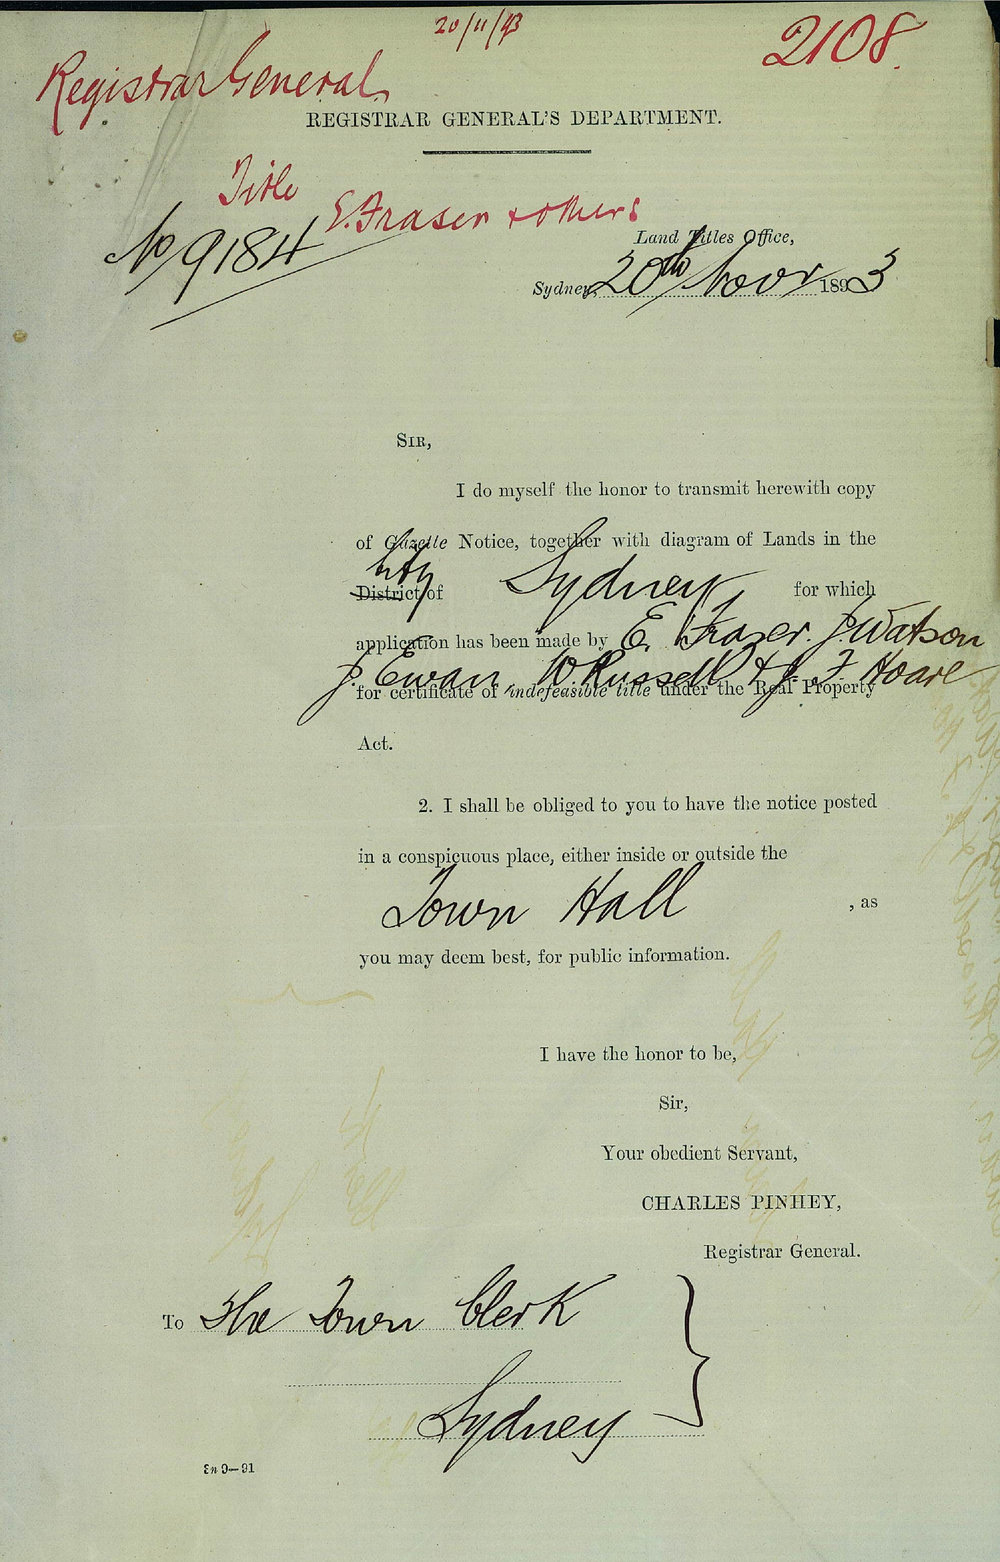 20/11/93
2108.
Registrar General.
REGISTRAR GENERAL'S DEPARTMENT.
Title
E. Fraser & others
No 9184
Land Titles Office,
Sydney, 20th Novr 1893
SIR,
I do myself the honor to transmit herewith copy
of Gazette Notice, together with diagram of Lands in the
City
District of Sydney for which
application has been made by E. Fraser. J. Watson
J. Ewan, W Russell & J. F Hoare
for certificate of indefeasible title under the Real Property
Act.
2. I shall be obliged to you to have the notice posted
in a conspicuous place, either inside or outside the
Town Hall , as
you may deem best, for public information.
I have the honor to be,
Sir,
Your obedient Servant,
CHARLES PINHEY,
Registrar General.
To The Town Clerk
Sydney
9—91